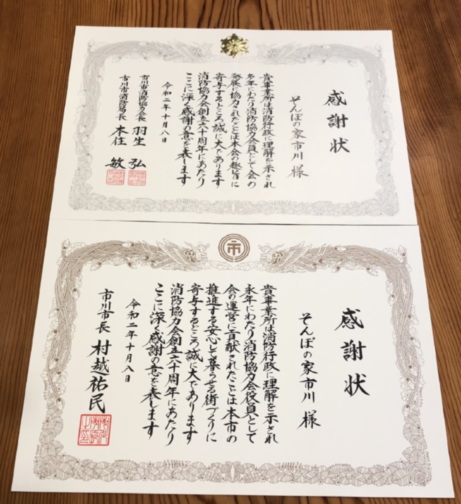 感謝状
そんぽの家市川 様
貴事業所は消防行政に理解を示され
多年にわたり消防協力会員として会の
発展に協力されたことは本会の趣旨に
寄与するところ誠に大であります
消防協力会創立六十周年にあたり
ここに深く感謝の意を表します
令和二年十月八日
市川市消防協力会長 羽生 弘
市川市消防局長 本住 敏
感謝状
そんぽの家市川 様
貴事業所は消防行政に理解を示され
永年にわたり消防協力会役員として
会の運営に貢献されたことは本市の
推進する安心して暮らせる街づくりに
寄与するところ誠に大であります
消防協力会創立六十周年にあたり
ここに深く感謝の意を表します
令和二年十月八日
市川市長 村越祐民